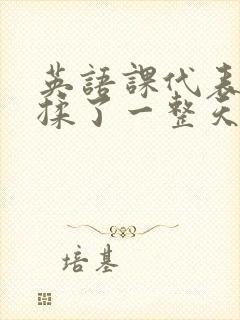 英語課代表
揉了一整天
培基